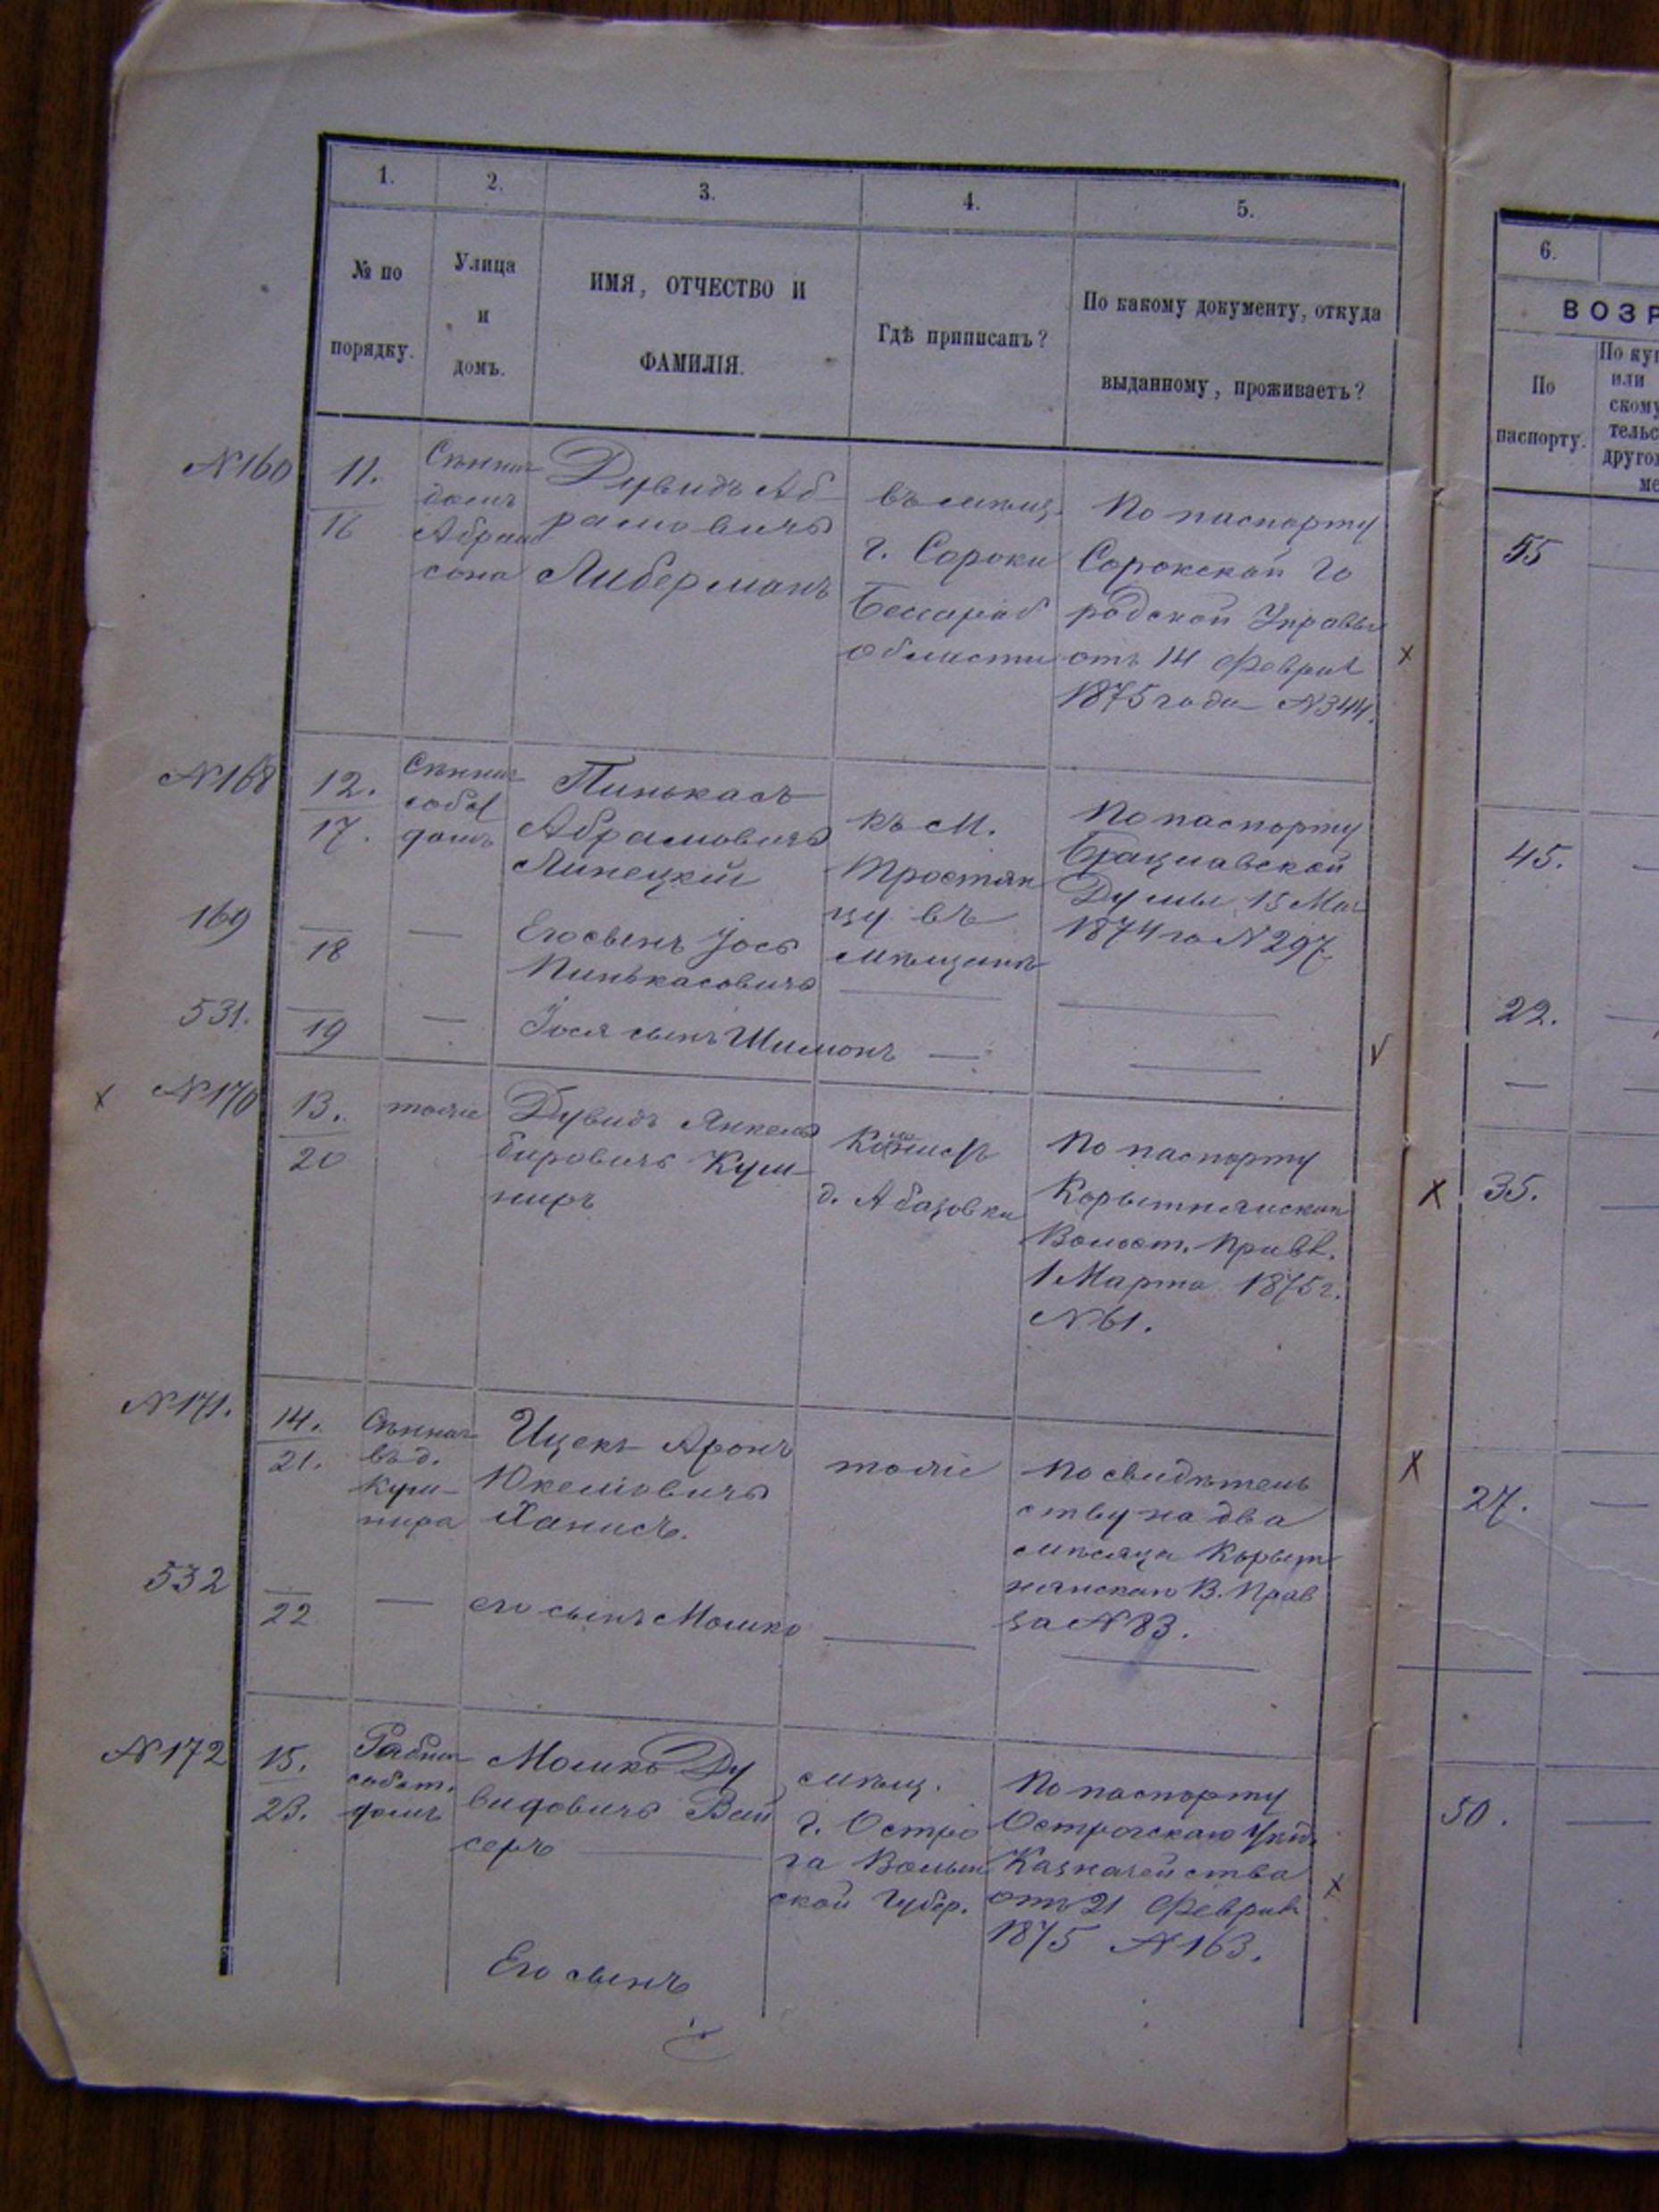 1.
2.
3.
4.
5.
6.
№ по
порядку.
Улица
и
домъ.
ИМЯ, ОТЧЕСТВО И
ФАМИЛІЯ.
Гдѣ приписанъ?
По какому документу, откуда
выданному, проживаетъ?
ВОЗР
По
паспорту.
По ку
или
скому
тельс
друго
ме
№160
11.
16
Сѣнная
домъ
Абрам
сона
Дувидъ Аб
рамовичъ
Либерманъ
въ мѣщ.
г. Сороки
Бессараб
области
По паспорту
Сорокской Го
родской Управы
отъ 14 Феврал
1875 года №344.
x
55
№168
12.
17.
Сѣнная
собст
домъ
Пинькасъ
Абрамовичъ
Линецкій
къ м.
Тростян
цу въ
мѣщане
По паспорту
Брацлавской
Думы 15 Мая
1874 го №297.
45.
169
18
—
Его сынъ Іось
Пинькасовичъ
22.
531.
19
—
Іося сынъ Шимонъ —
v
x №170
13.
20
тоже
Дувидъ Янкель
беровичъ Куш-
ниръ
д. Абазовки
По паспорту
Корытнянскаго
Волост. Правл.
1 Марта 1875 г.
№61.
x
35.
№171.
14.
21.
Сѣнная
въ д.
Куш-
нира
Ицекъ Аронъ
Юкелiовичъ
Ханисъ.
тоже
По свидѣтель
ству на два
мѣсяца Корыт
нянскаго В. Прав
за №83.
x
27.
532
22
—
его сынъ Мошко
№172
15.
23.
собст.
домъ
Мошко Ду
видовичъ Вай
серъ
мѣщ.
г. Остро
га Волын
ской Губер.
По паспорту
Острогскаго Уѣзд.
Казначейства
отъ 21 Феврал
1875 №163.
x
50.
Его сынъ